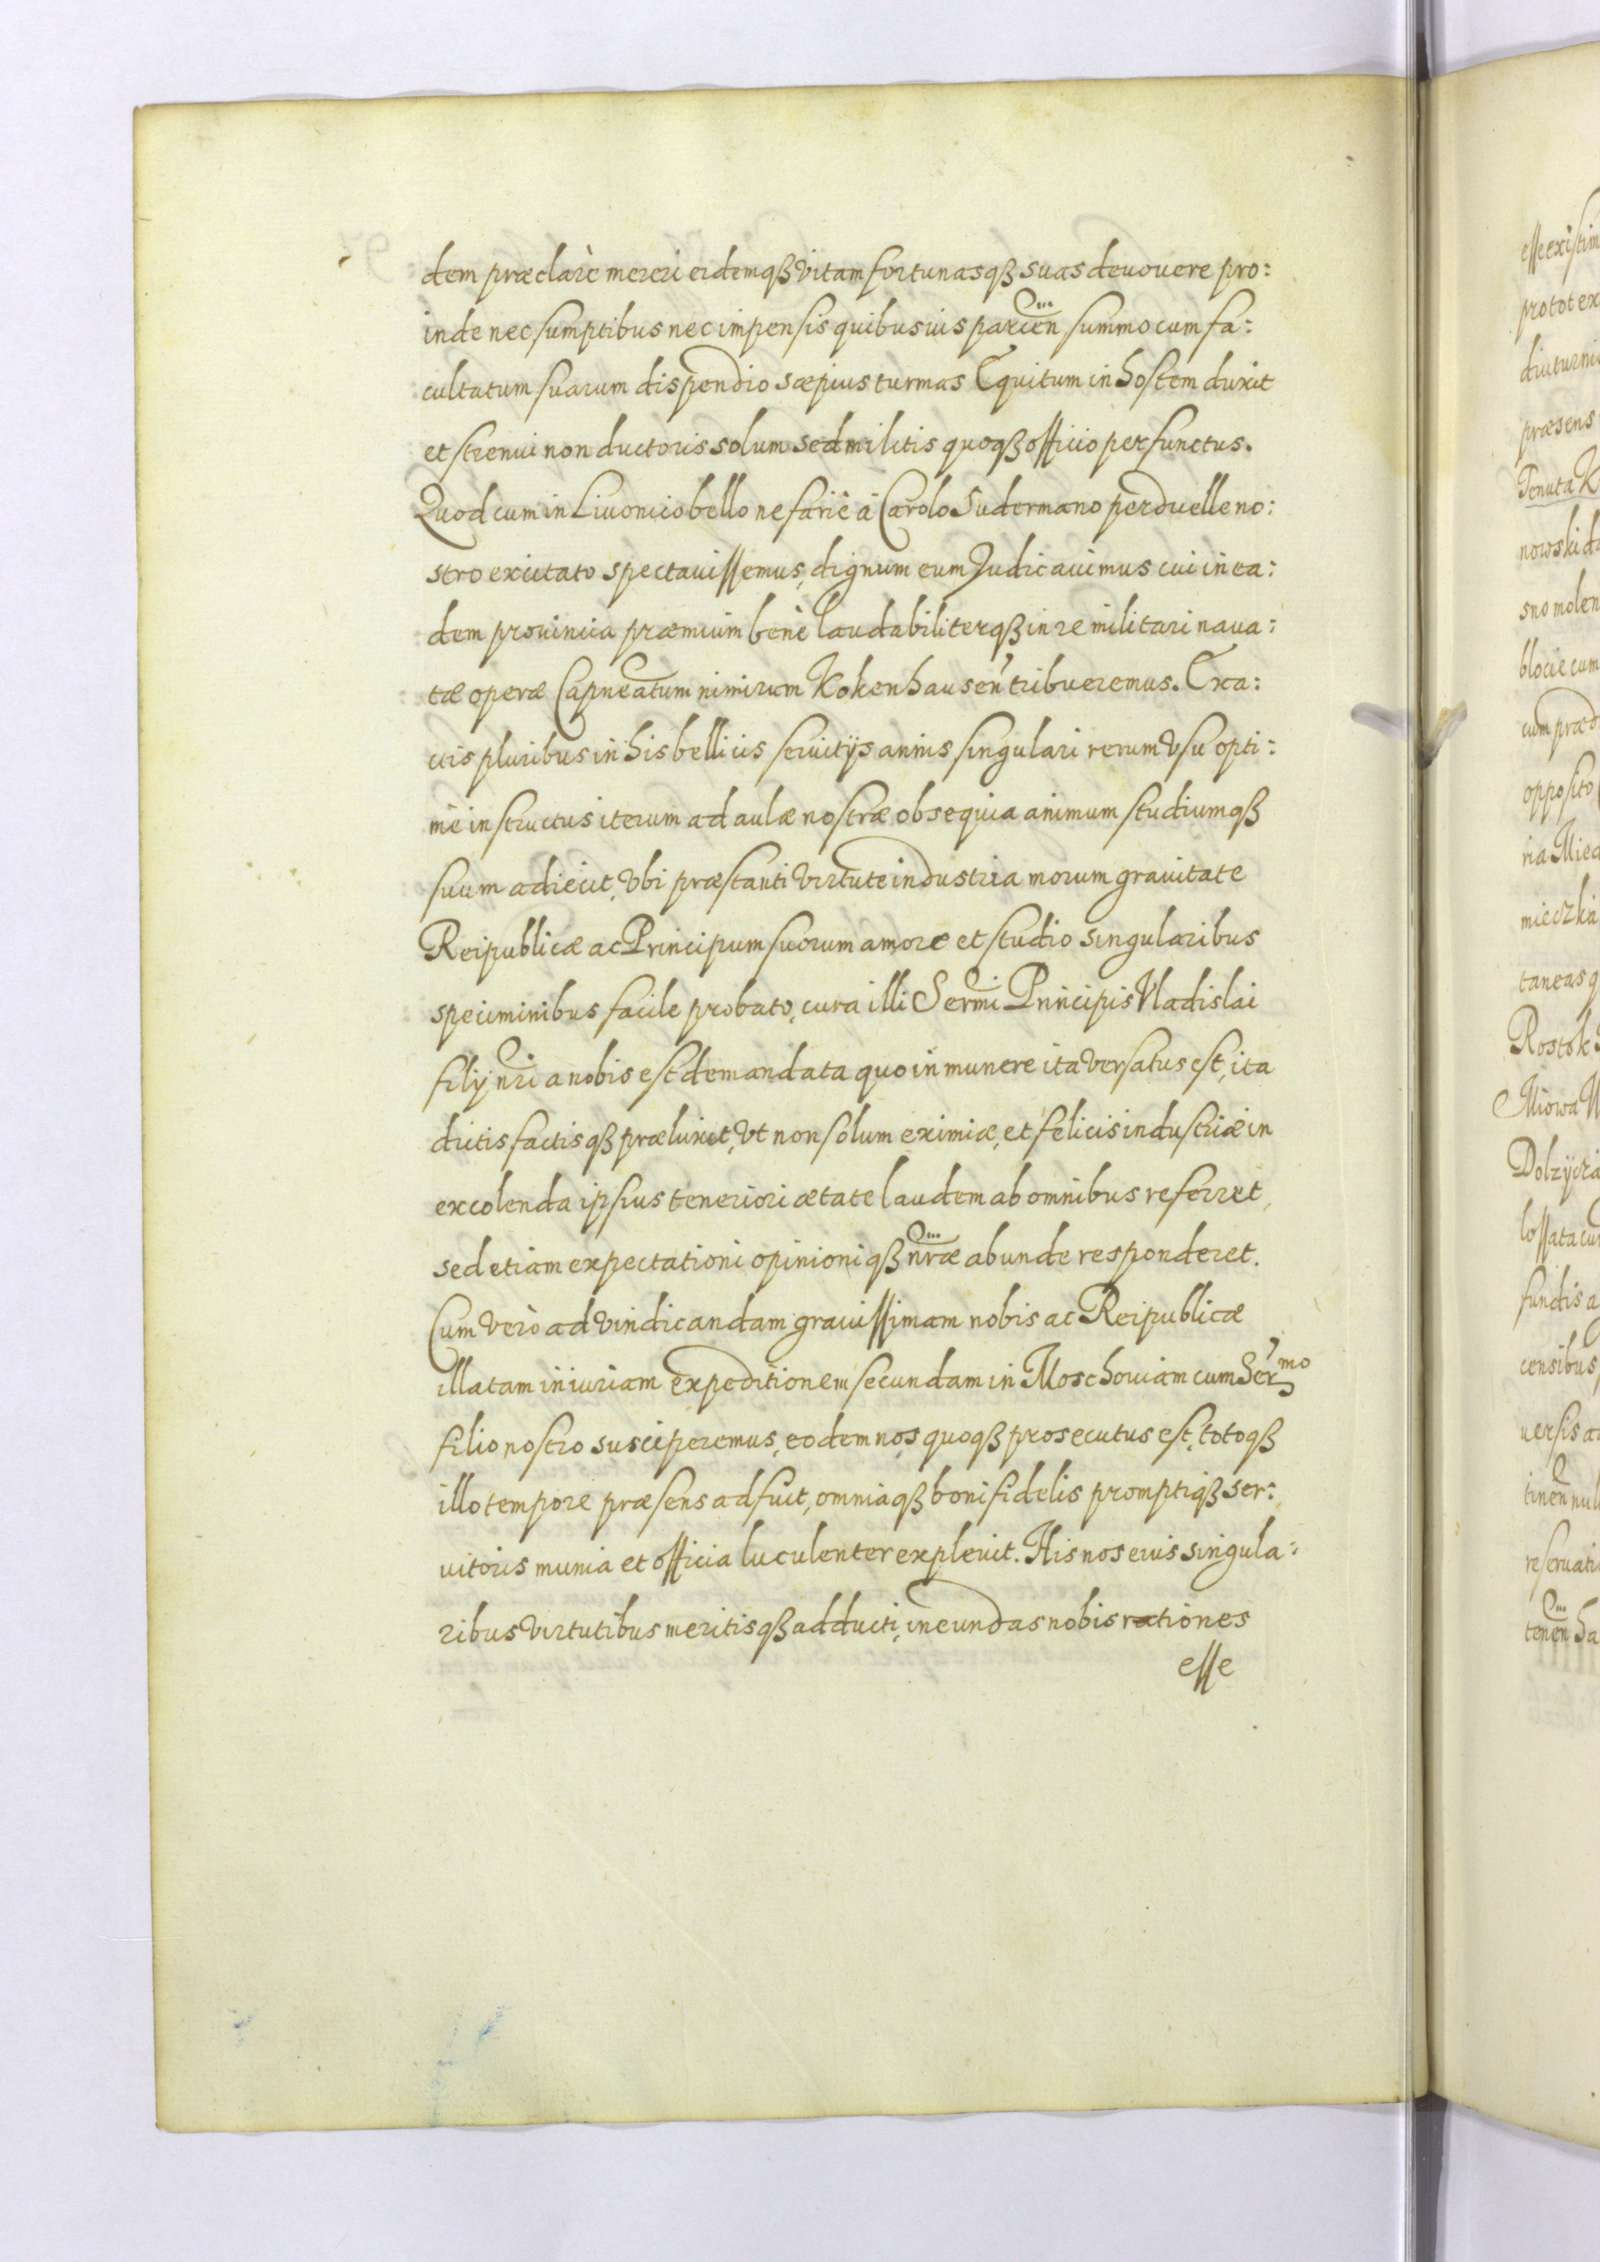 dem præclarè mereri eidemqß vitam fortunasqß suas devovere pro:
inde nec sumptibus nec impensis quibusvis parcen̄ summo cum fa:
cultatum suarum dispendio sæpius turmas Equitum in hostem duxit
et strenui non ductoris solum sed militis quoqß officio perfunctus.
Quod cum in Livonico bello nefariè à Carolo Sudermano perduelle no:
stro excitato spectavissemus, dignum eum Judicavimus cui in ea:
dem provincia præmium benè laudabiliterqß in re militari nava:
tæ operæ Capneatum nimirum Kokenhausen̄ tribueremus. Exa:
ctis pluribus in his bellicis servitijs annis singulari rerum vsu opti:
mè instructus iterum ad aulæ nostræ obsequia animum studiumqß
suum adiecit, vbi præstanti virtute industria morum gravitate
Reipublicæ ac Principum suorum amore et studio singularibus
speciminibus facile probato, cura illi Sermi Principis Vladislai
filij nri a nobis est demandata quo in munere ita versatus est, ita
dictis factisqß præluxit, vt non solum eximiæ, et felicis industriæ in
excolenda ipsius teneriori ætate laudem ab omnibus referret,
sed etiam expectationi opinioniqß nræ abunde responderet.
Cum verò ad vindicandam gravissimam nobis ac Reipublicæ
illatam iniuriam expeditionem secundam in Moschoviam cum Sermo
filio nostro susciperemus, eodem nos quoqß prosecutus est, totoqß
illo tempore præsens adfuit, omniaqß boni fidelis promptiqß ser:
vitoris munia et officia luculenter explevit. His nos eius singula:
ribus virtutibus meritisqß adducti, ineundas nobis rationes
esse
esse existim
pro tot ex
diuturni
præsens
Tenuta K
nowski d
sno molen
blocie cum
cum præd
opposito
ria Mied
mieczka
taneas q
Rostok
Miowa W
Dolzycza
lossata cu
fundis a
censibus
versis a
tinen̄ nul
reservati
tenen̄ ha